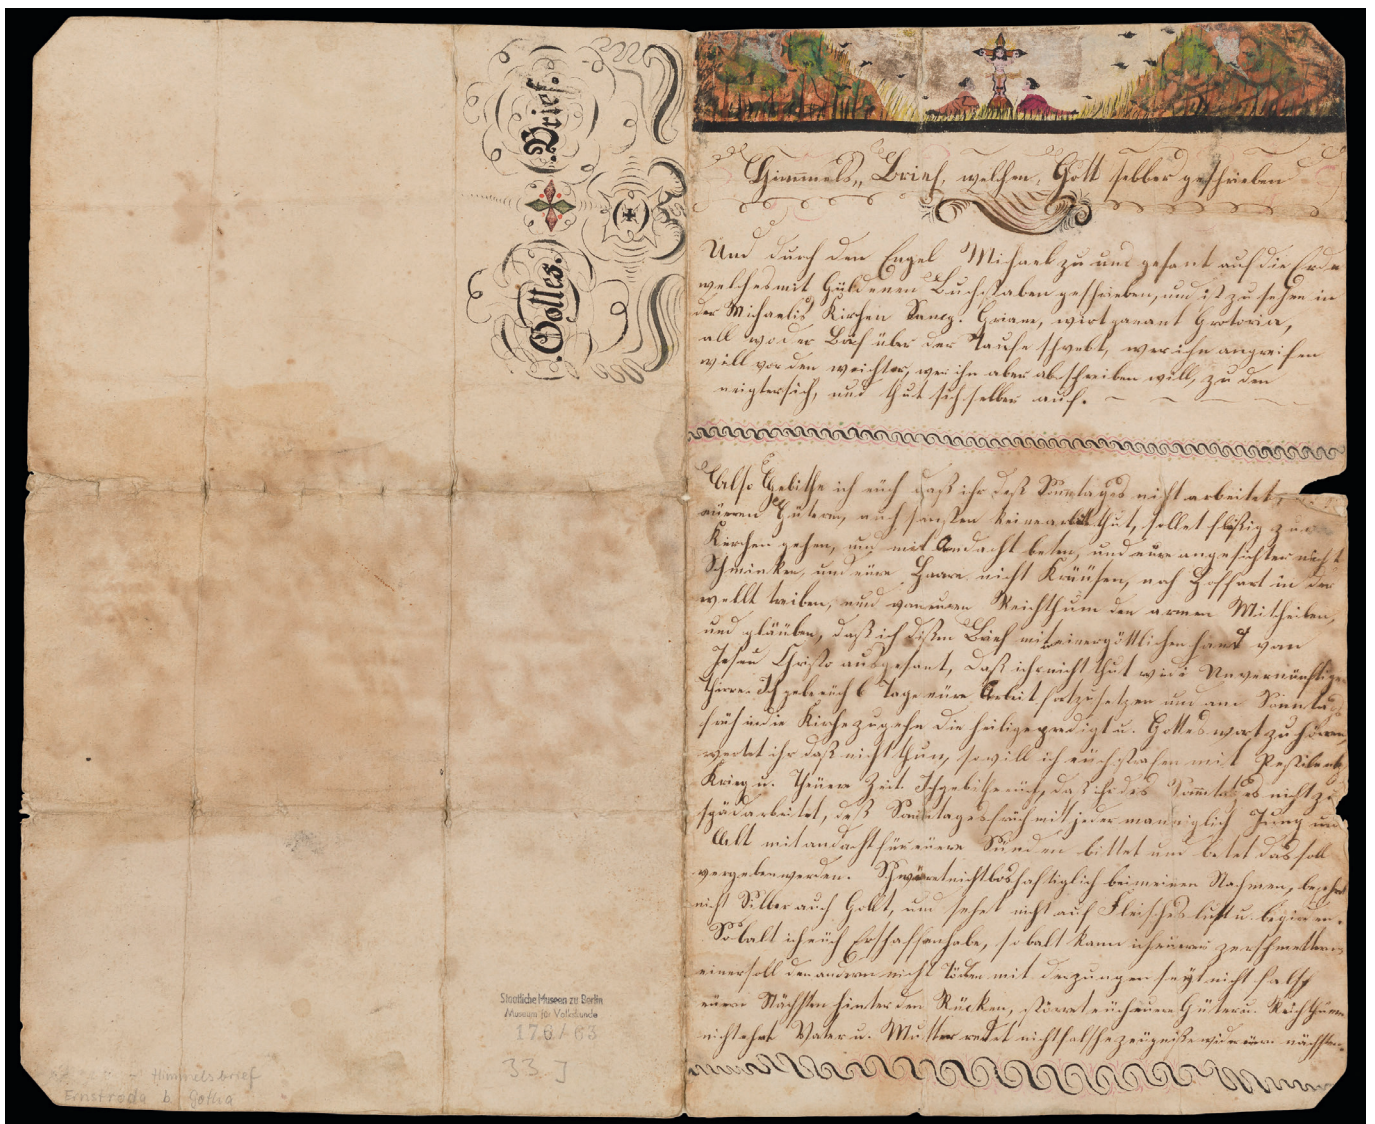 .Gottes. Brief.
Himmels„ Brief, welchen Gott selber geschrieben
Und durch den Engel Michael zu uns gesant auf die Erde
welches mit Güldenen Buchstaben geschrieben, und ist zu sehen in
der Michaelis Kirchen Sanct. genant Grotoria,
all wo der Brief über der Taufe schwebt, wer ihn angreifen
will vor den weichter, wer ihn aber abschreiben will, zu den
neigter sich, und thut sich selber auf.
Also Gebithe ich euch daß ihr deß Sonntages nicht arbeitet,
euren Gütern, auch sonsten keine arbeit thut, sollet fleißig zur
Kirchen gehen, und mit Andacht beten, und eüre angesichter nicht
Schminken, und eüre Haare nicht Kräusen, noch Hoffart in der
wellt treiben, und von euren Reichthum den armen Mittheilen,
und gläuben, daß ich dißen Brief mit einer göttlichen hand von
Jesu Christo ausgesant, daß ihr nicht thut wie Unvernünftige
Thiere. Ich gebe euch 6 Tage eüre Arbeit fortzusetzen und am Sontag
früh in die Kirche zu gehn die heilige predigt u. Gottes wort zu hören,
werdet ihr daß nicht thun, so will ich euch strafen mit Pestilentz
Krieg u. Theuere Zeit. Ich gebithe euch, das ihr des Sonntages nicht zu
spät arbeitet, deß Sonntages früh mit jeder manniglich Jung und
Alt mit andacht für eüere Sünden bittet und betet das soll
vergeben werden. Schwöret nicht boshaftiglich bei meinen Nahmen, begehrt
nicht Silber auch Gold, und sehet nicht auf Fleisches lust u. begirden.
Sobalt ich euch Erschaffen habe, so balt kann ich euch zerschmettern
einer soll den andern nicht Töden mit der zungen seyt nicht falsch
euern Nächsten hinter den Rücken, eüere Güter u. Reichthum
nicht ehret Vater u. Mutter redet nicht falsche zeugniße wider nächsten
Staatliche Museen zu Berlin
Museum für Volkskunde
178/63
33 J
Himmelsbrief
Ernstroda b. Gotha